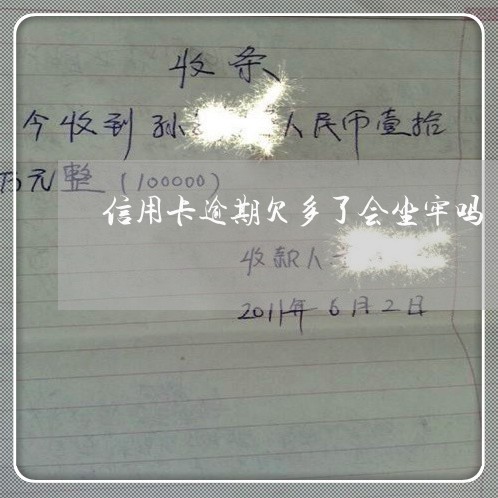 收条
今收到孙 人民币壹拾
万元整（100000）
信用卡逾期欠多了会坐牢吗
收款人
2011年6月2日